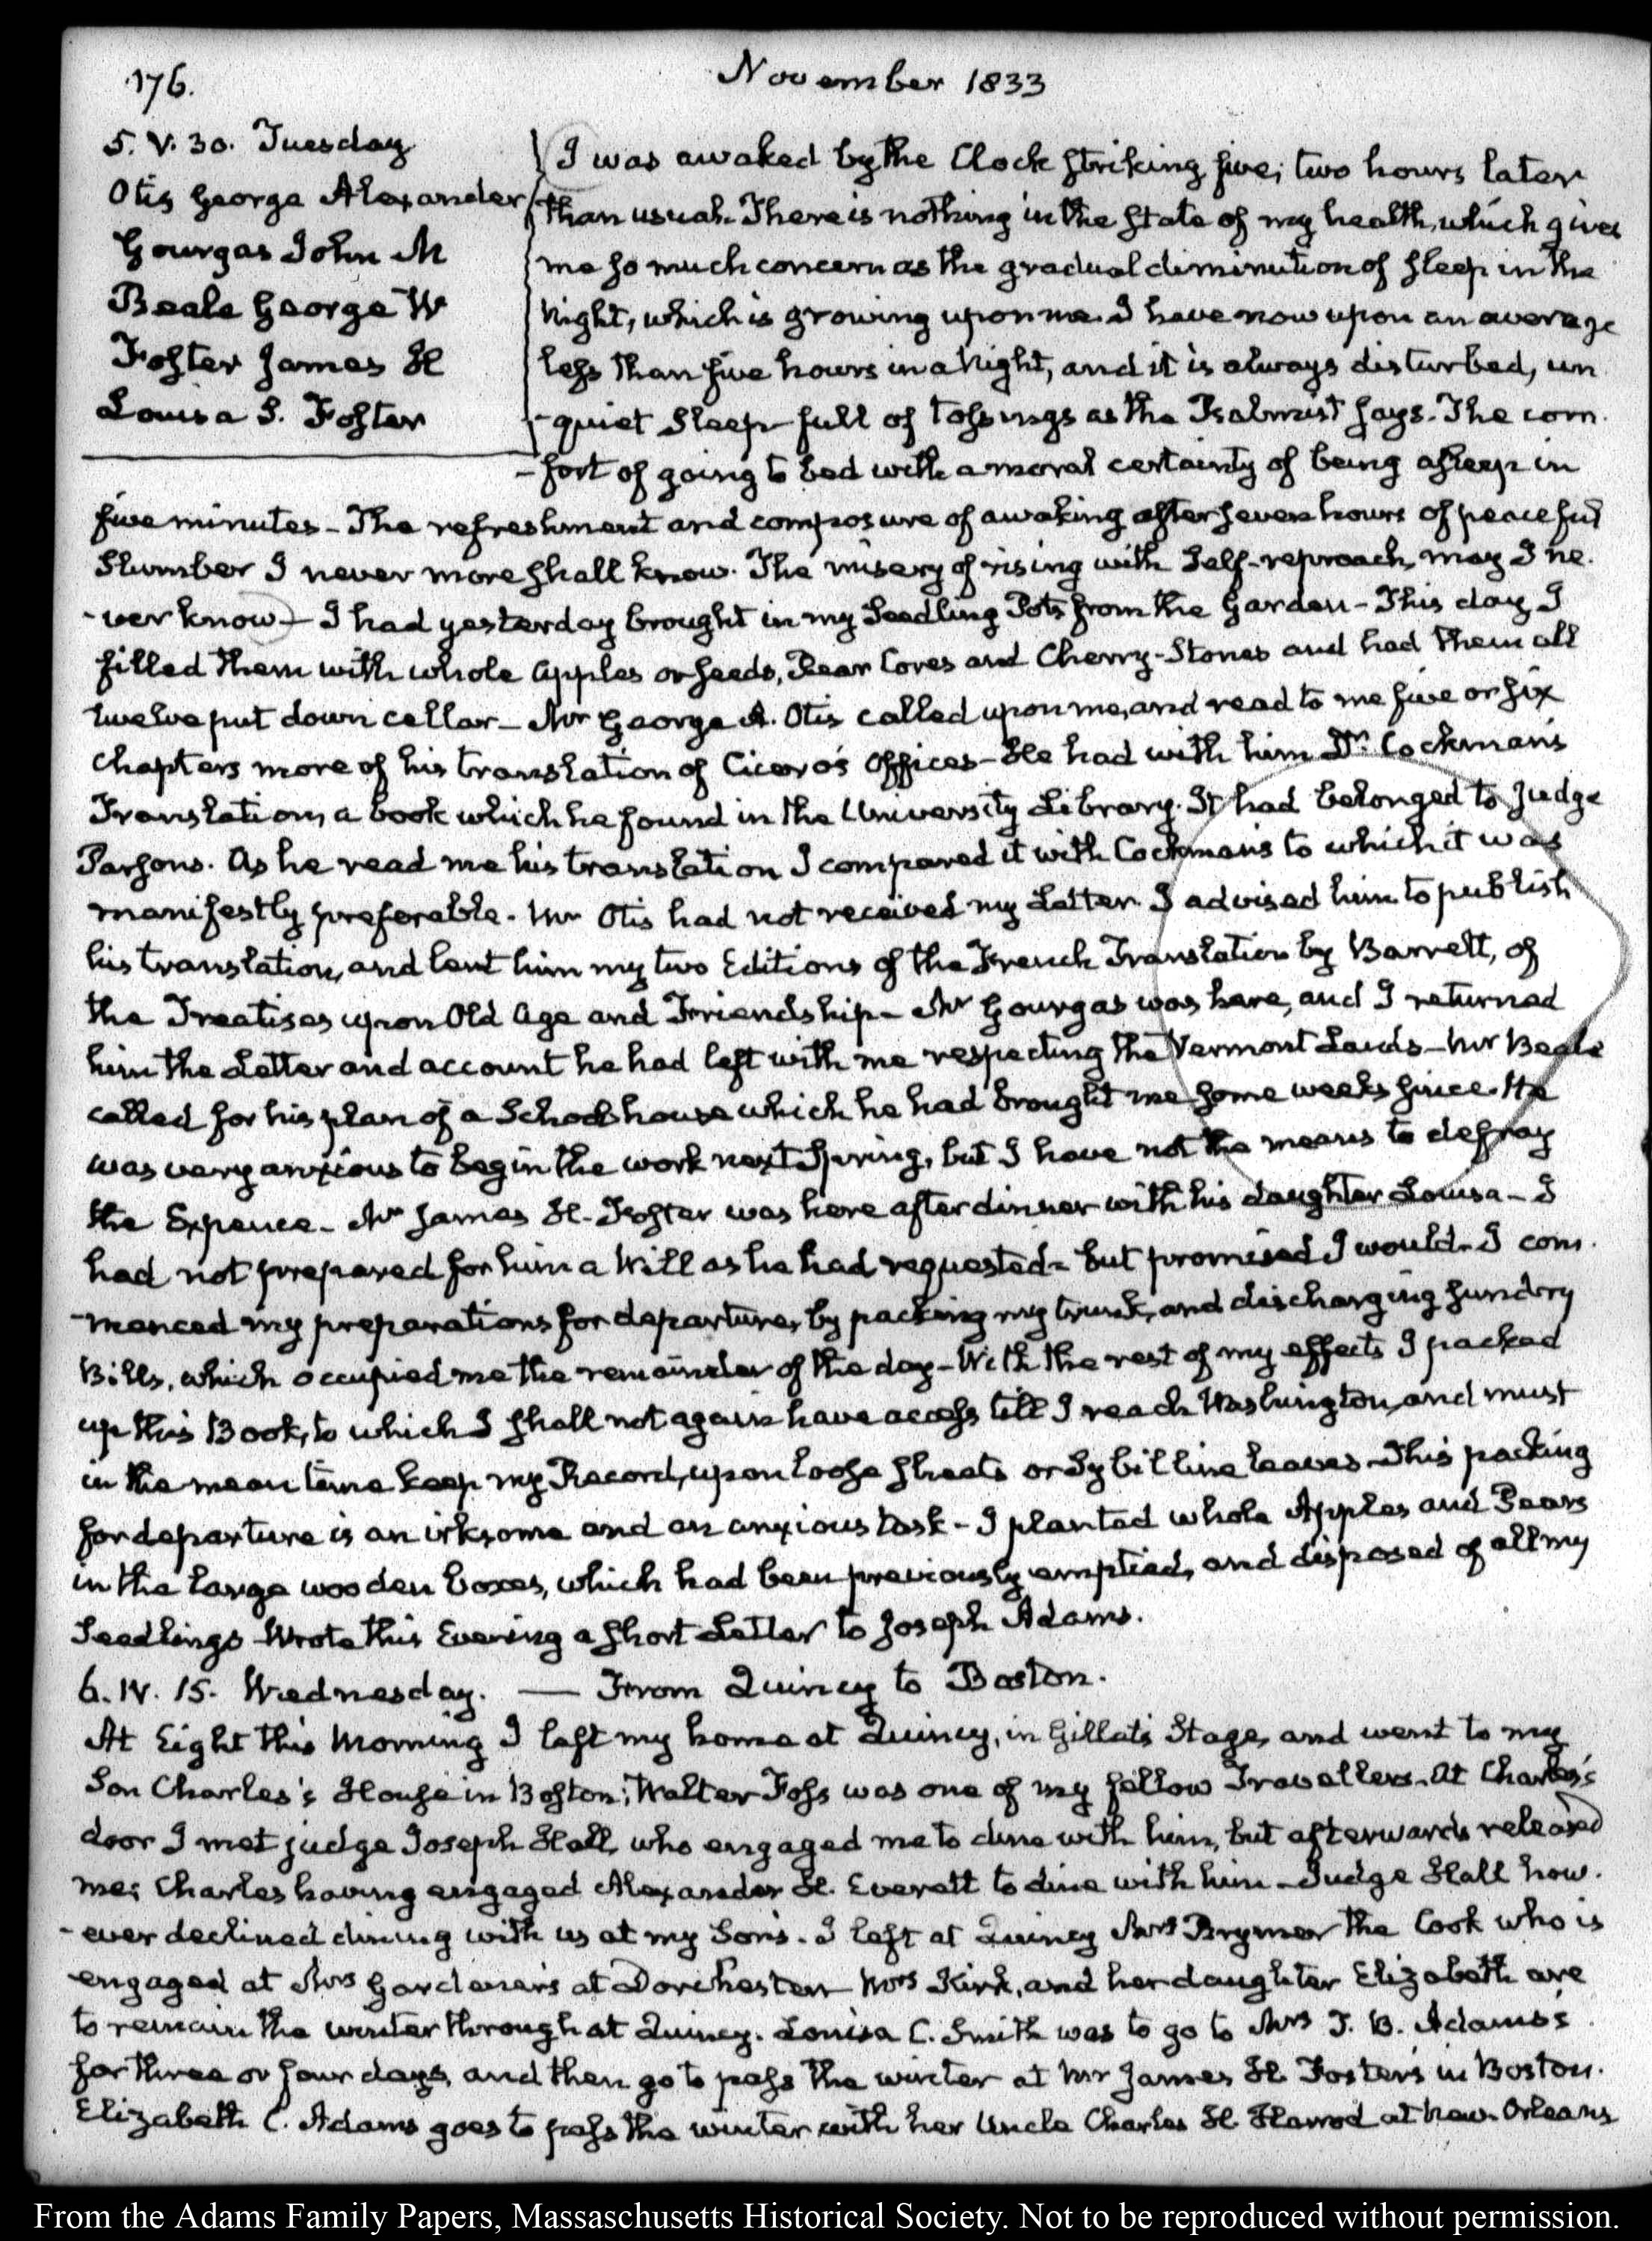 176.
November 1833
5. V. 30. Tuesday
Otis George Alexander
Gourgas John M
Beale George W
Foster James H
Louisa S. Foster
I was awaked by the Clock striking five; two hours later
than usual. There is nothing in the state of my health, which gives
me so much concern as the gradual diminution of sleep in the
Night, which is growing upon me. I have now upon an average
less than five hours in a Night, and it is always disturbed, un
-quiet Sleep- full of tossings as the Psalmist says. The com
-fort of going to bed with a moral certainty of being asleep in
five minutes - The refreshment and composure of awaking after seven hours of peaceful
Slumber I never more shall know. The misery of rising with Self-reproach, may I ne.
-ver know - I had yesterday brought in my Seedling Pots from the Garden - This day I
filled them with whole apples or seeds, Pear Cores and Cherry-Stones and had them all
twelve put down cellar - Mr George A. Otis called upon me, and read to me five or six
Chapters more of his translation of Cicero's Offices - He had with him Dr. Cockman's
Translation, a book which he found in the University Library. It had belonged to Judge
Parsons. As he read me his translation I compared it with Cockman's to which it was
manifestly preferable. Mr Otis had not received my Letter. I advised him to publish
his translation, and lent him my two Editions of the French Translation by Barrett, of
the Treatises upon Old Age and Friendship - Mr Gourgas was here, and I returned
him the Letter and account he had left with me respecting the Vermont Lands - Mr Beale
called for his plan of a School house which he had brought me some weeks since. He
was very anxious to begin the work next Spring, but I have not the means to defray
the Expence - Mr James H. Foster was here after dinner with his daughter Louisa - I
had not prepared for him a Will as he had requested - but promised I would - I com.
-menced my preparations for departure, by packing my trunk, and discharging sundry
Bills, which occupied me the remainder of the day - With the rest of my effects I packed
up this Book, to which I shall not again have access till I reach Washington, and must
in the mean time keep my Record, upon loose sheets or Sybilline leaves - This packing
for departure is an irksome and an anxious task - I planted whole Apples and Pears
in the large wooden boxes, which had been previously emptied, and disposed of all my
Seedlings - Wrote this Evening a short Letter to Joseph Adams.
6. IV. 15. Wednesday. — From Quincy to Boston.
At Eight this Morning I left my home at Quincy, in Gillet's Stage, and went to my
Son Charles's House in Boston; Walter Foss was one of my fellow Travellers. At Charles's
door I met judge Joseph Hall, who engaged me to dine with him, but afterwards released
me; Charles having engaged Alexander H. Everett to dine with him - Judge Hall how.
-ever declined dining with us at my Son's. I left at Quincy Mrs Prymer the Cook who is
engaged at Mrs Gardener's at Dorchester - Mrs Kirk, and her daughter Elizabeth are
to remain the winter through at Quincy. Louisa C. Smith was to go to Mrs T. B. Adams's
for three or four days, and then go to pass the winter at Mr James H. Foster's in Boston.
Elizabeth C. Adams goes to pass the winter with her Uncle Charles H. Harrod at New-Orleans
From the Adams Family Papers, Massaschusetts Historical Society. Not to be reproduced without permission.